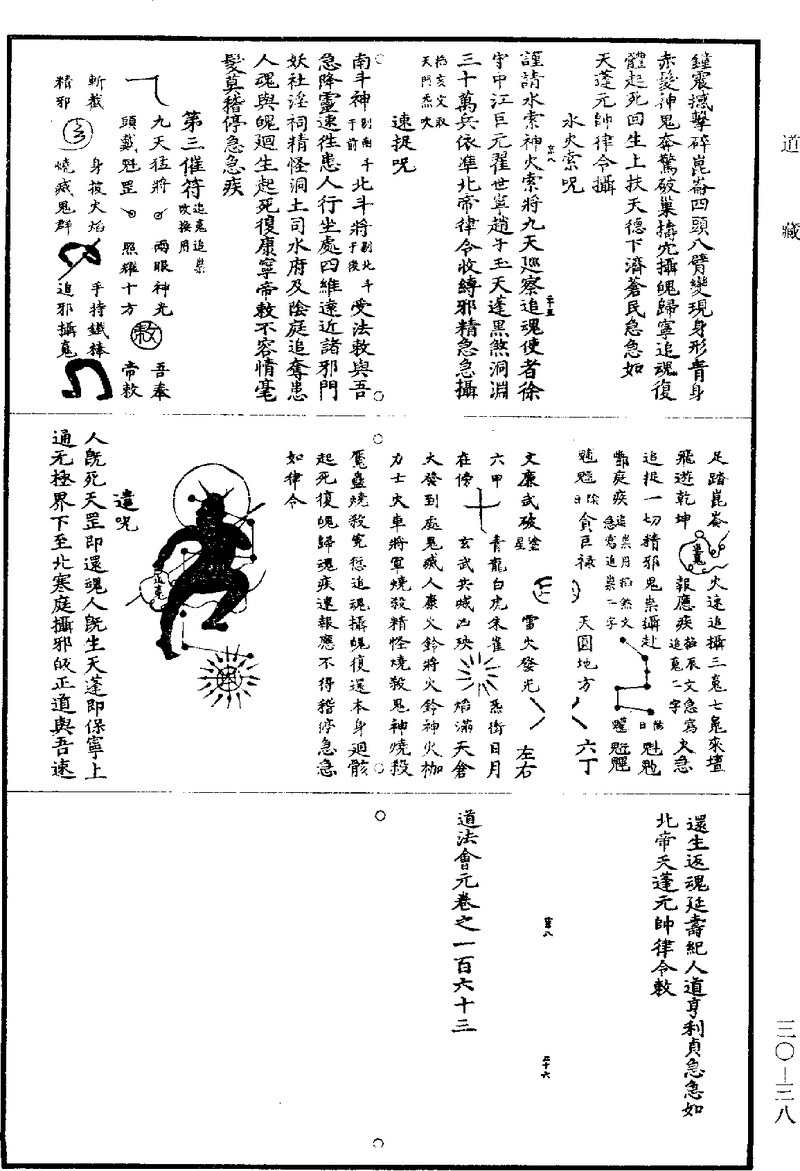 道藏
鐘震撼擊碎崑崙四頭八臂變現身形青身
赤髮神鬼奔驚破巢擣穴攝魄歸寧追魂復
體起死回生上扶天德下濟蒼民急急如
天蓬元帥律令攝
水火索呪
謹請水索神火索將九天巡察追魂使者徐
宇中江巨元翟世寧趙子玉天蓬黑煞洞淵
三十萬兵依準北帝律令收縛邪精急急攝
掐亥文取
天門炁吹
速捉呪
南斗神
北斗將
受法敕與吾
急降靈速徃患人行坐處四維遠近諸邪門
妖社淫祠精怪洞土司水府及陰庭追奪患
人魂與魄廻生起死復康寧帝敕不容情毫
髮莫稽停急急疾
第三催符
追鬼追祟
改換用
九天猛將
兩眼神光
吾奉
頭戴魁罡
照耀十方
敕
帝敕
斬截
身披火焰
手持鐵棒
精邪
燒滅鬼群
追邪攝鬼
足踏崑崙
火速追攝三魂七魄來壇
飛遊乾坤
報應疾
掐辰文急寫
追鬼二字
火急
追捉一切精邪鬼祟攝赴
魁魁
酆庭疾
貪巨祿
天圓地方
六丁
文廉武破
雷火發光
左右
六甲
青龍白虎朱雀
炁衝日月
在傍
玄武兵滅凶殃
焰滿天倉
火發到處鬼滅人康火鈴將火鈴神火枷
力士火車將軍燒殺精怪燒殺鬼神燒殺
魘蠱燒殺冤愆追魂攝魄復還本身廻骸
起死復魄歸魂疾速報應不得稽停急急
如律令
遣呪
人旣死天罡即還魂人旣生天蓬即保寧上
通无極界下至北寒庭攝邪皈正道與吾速
還生返魂延壽紀人道亨利貞急急如
北帝天蓬元帥律令敕
道法會元卷之一百六十三
三〇—三八